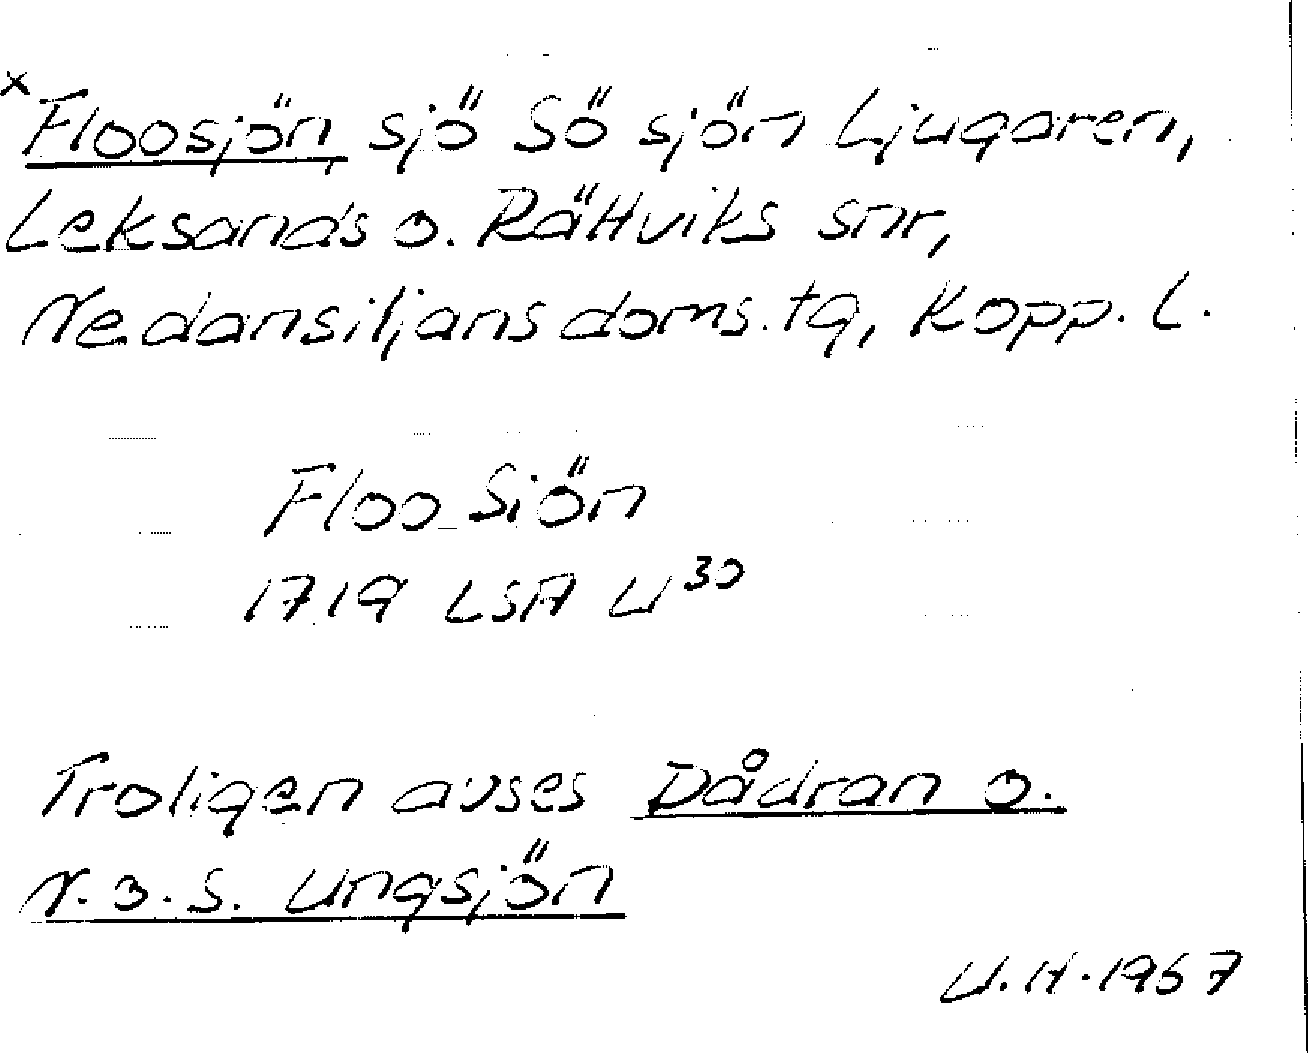 x Floosjön, sjö SÖ sjön Ljugaren,
Leksands o. Rättviks snr,
Nedansiljans doms. tg, Kopp. L.
Floo Siön
1719 LSA U 30
Troligen avses Dådran o.
N. o. S. Ungsjön
U.H. 1967